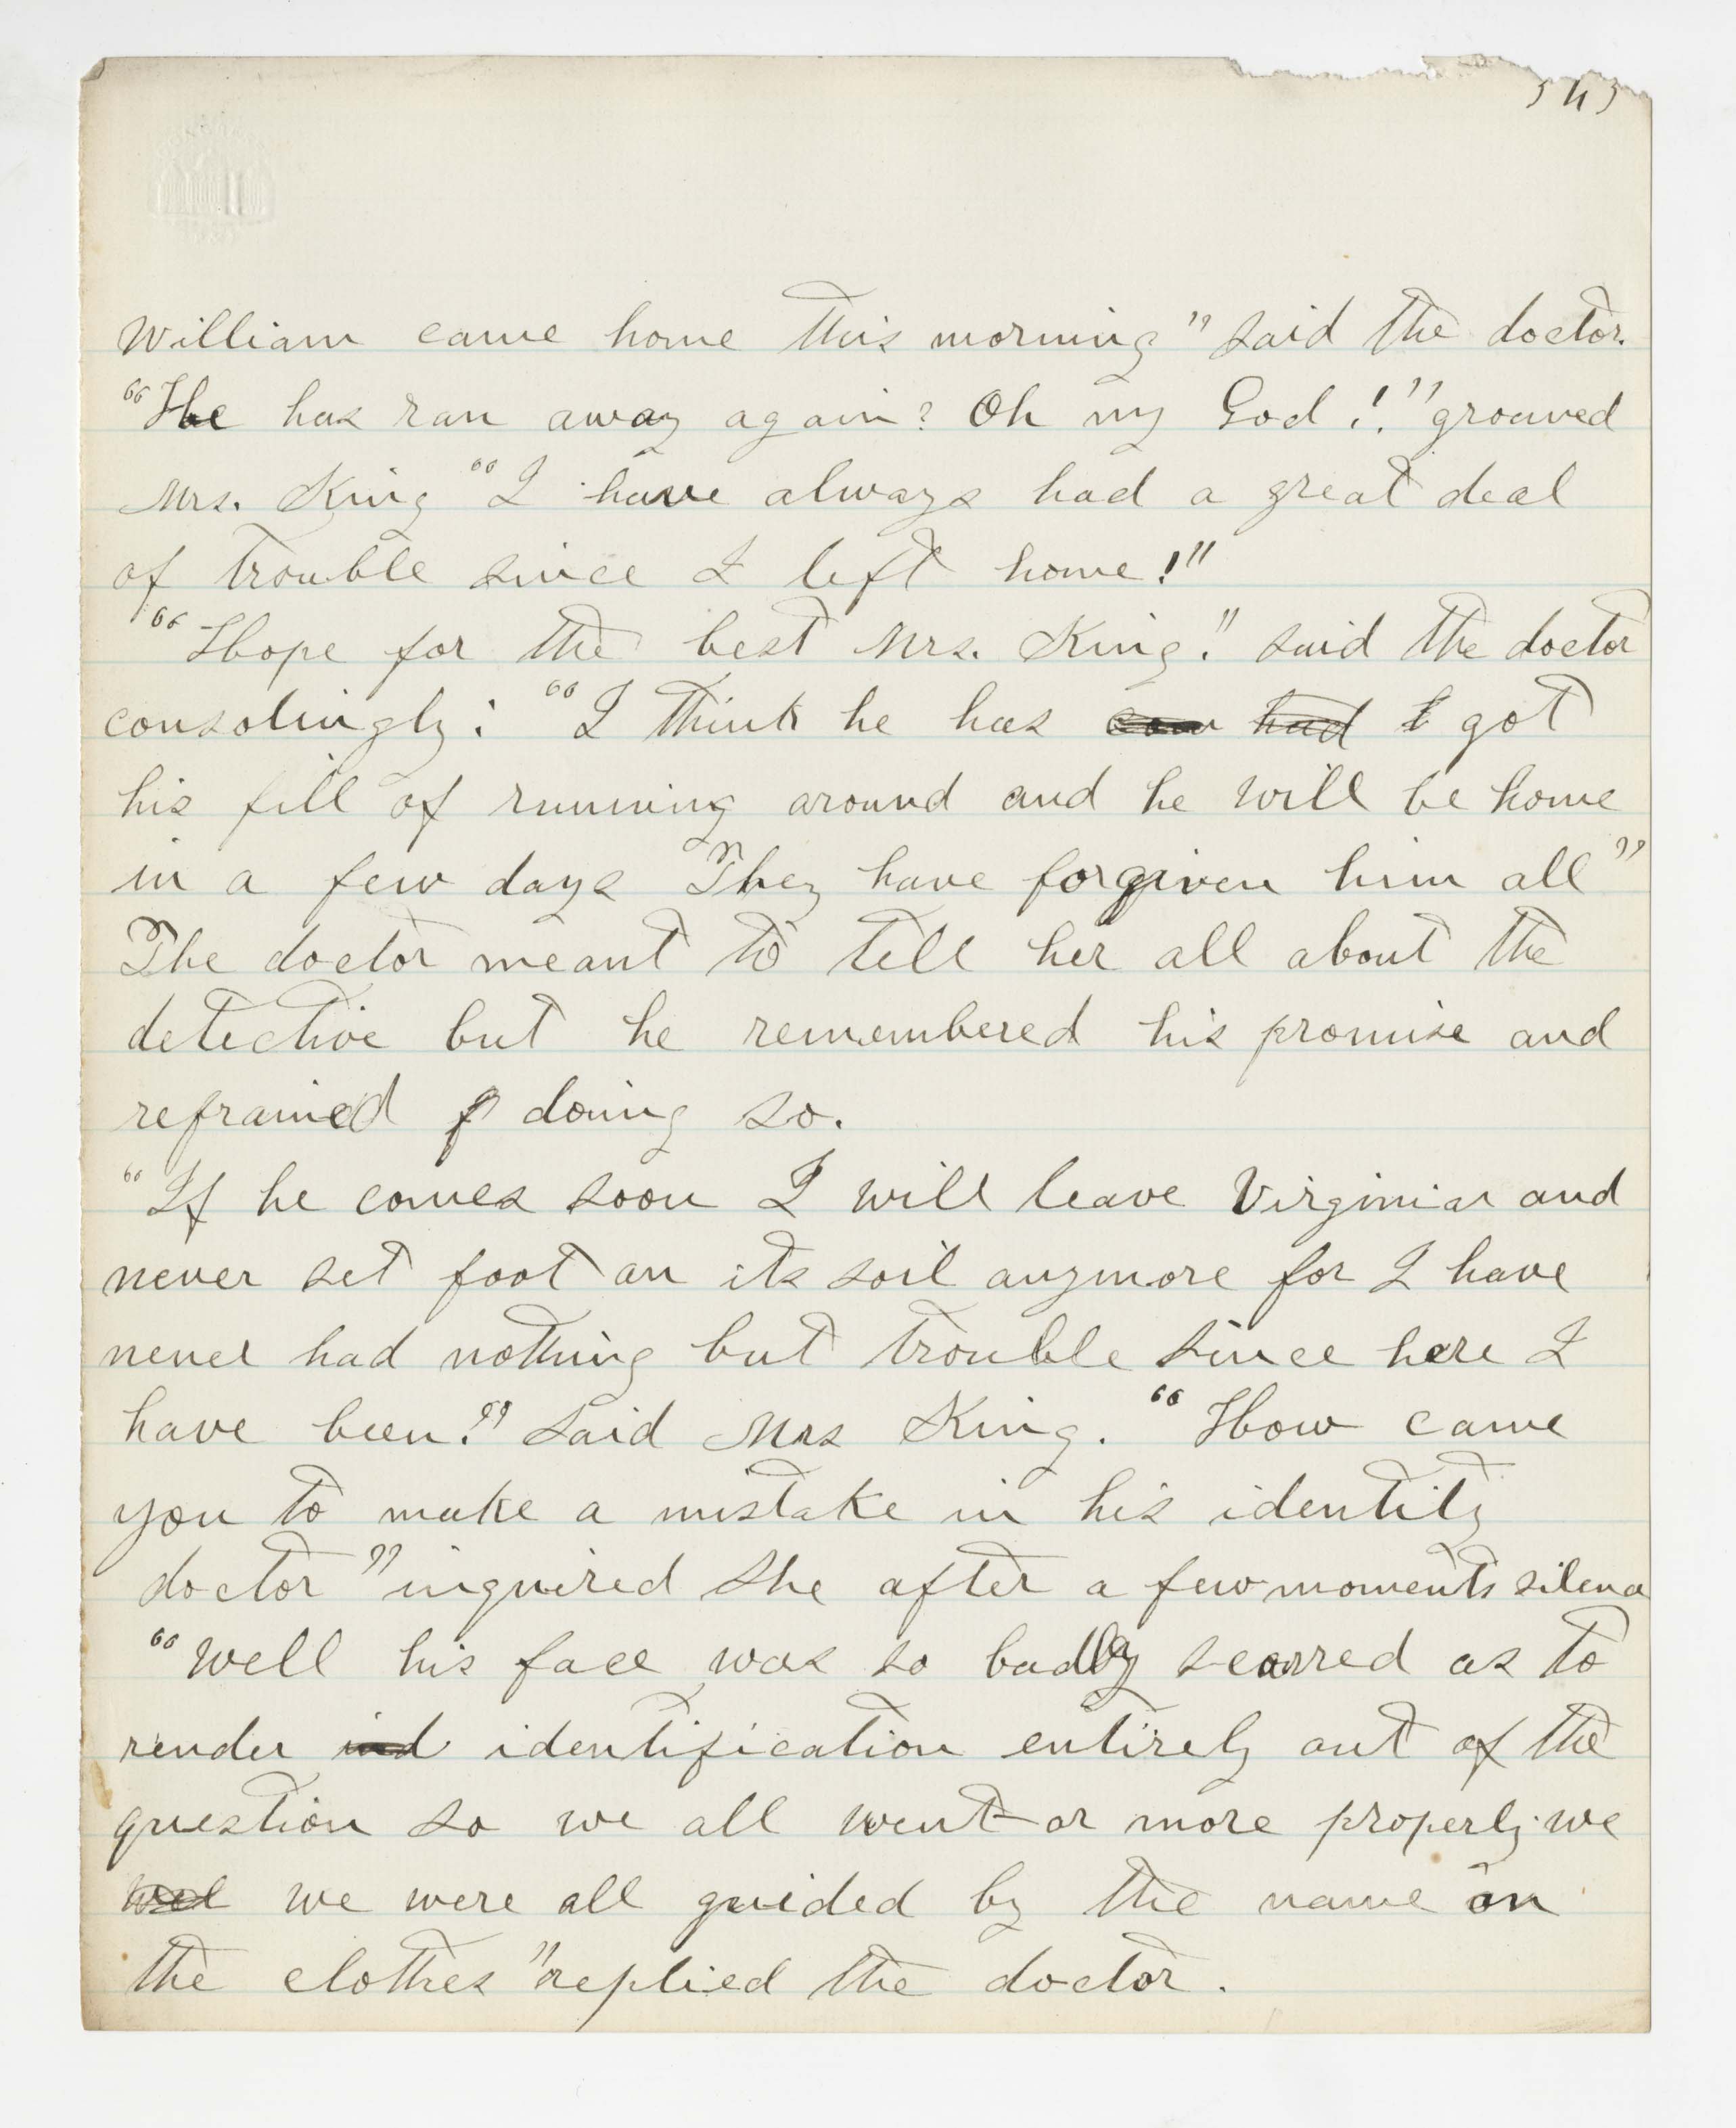 William came home this morning" said the doctor.
"He has ran away again? Oh my God!" groaned
Mrs. King "I have always had a great deal
of trouble since I left home!"
"Hope for the best Mrs. King." said the doctor
consolingly: "I think he has had t got
his fill of running around and he will be home
in a few days They have forgiven him all"
The doctor meant to tell her all about the
detective but he remembered his promise and
refrained f doing so.
"If he comes soon I will leave Virginia and
never set foot an its soil anymore for I have
never had nothing but trouble since here I
have been." Said Mrs King. "How came
you to make a mistake in his identity
doctor" inquired she after a few moments silence
"Well his face was so badly scarred as to
render ind identification entirely out of the
question so we all went or more properly we
we were all guided by the name on
the clothes" replied the doctor.